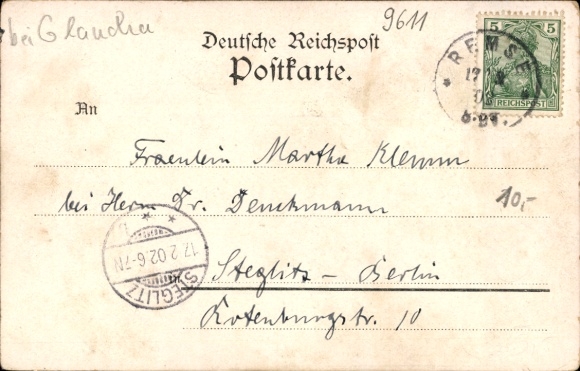 bei Glauchau
9611
Deutsche Reichspost
Postkarte.
5
REICHSPOST
REMSE
17
02
An
Fraeulein Martha Klemm
bei Herrn Dr. Denckmann
10,-
STEGLITZ
17.2.02.6-7N
Steglitz – Berlin
Rotenburgstr. 10